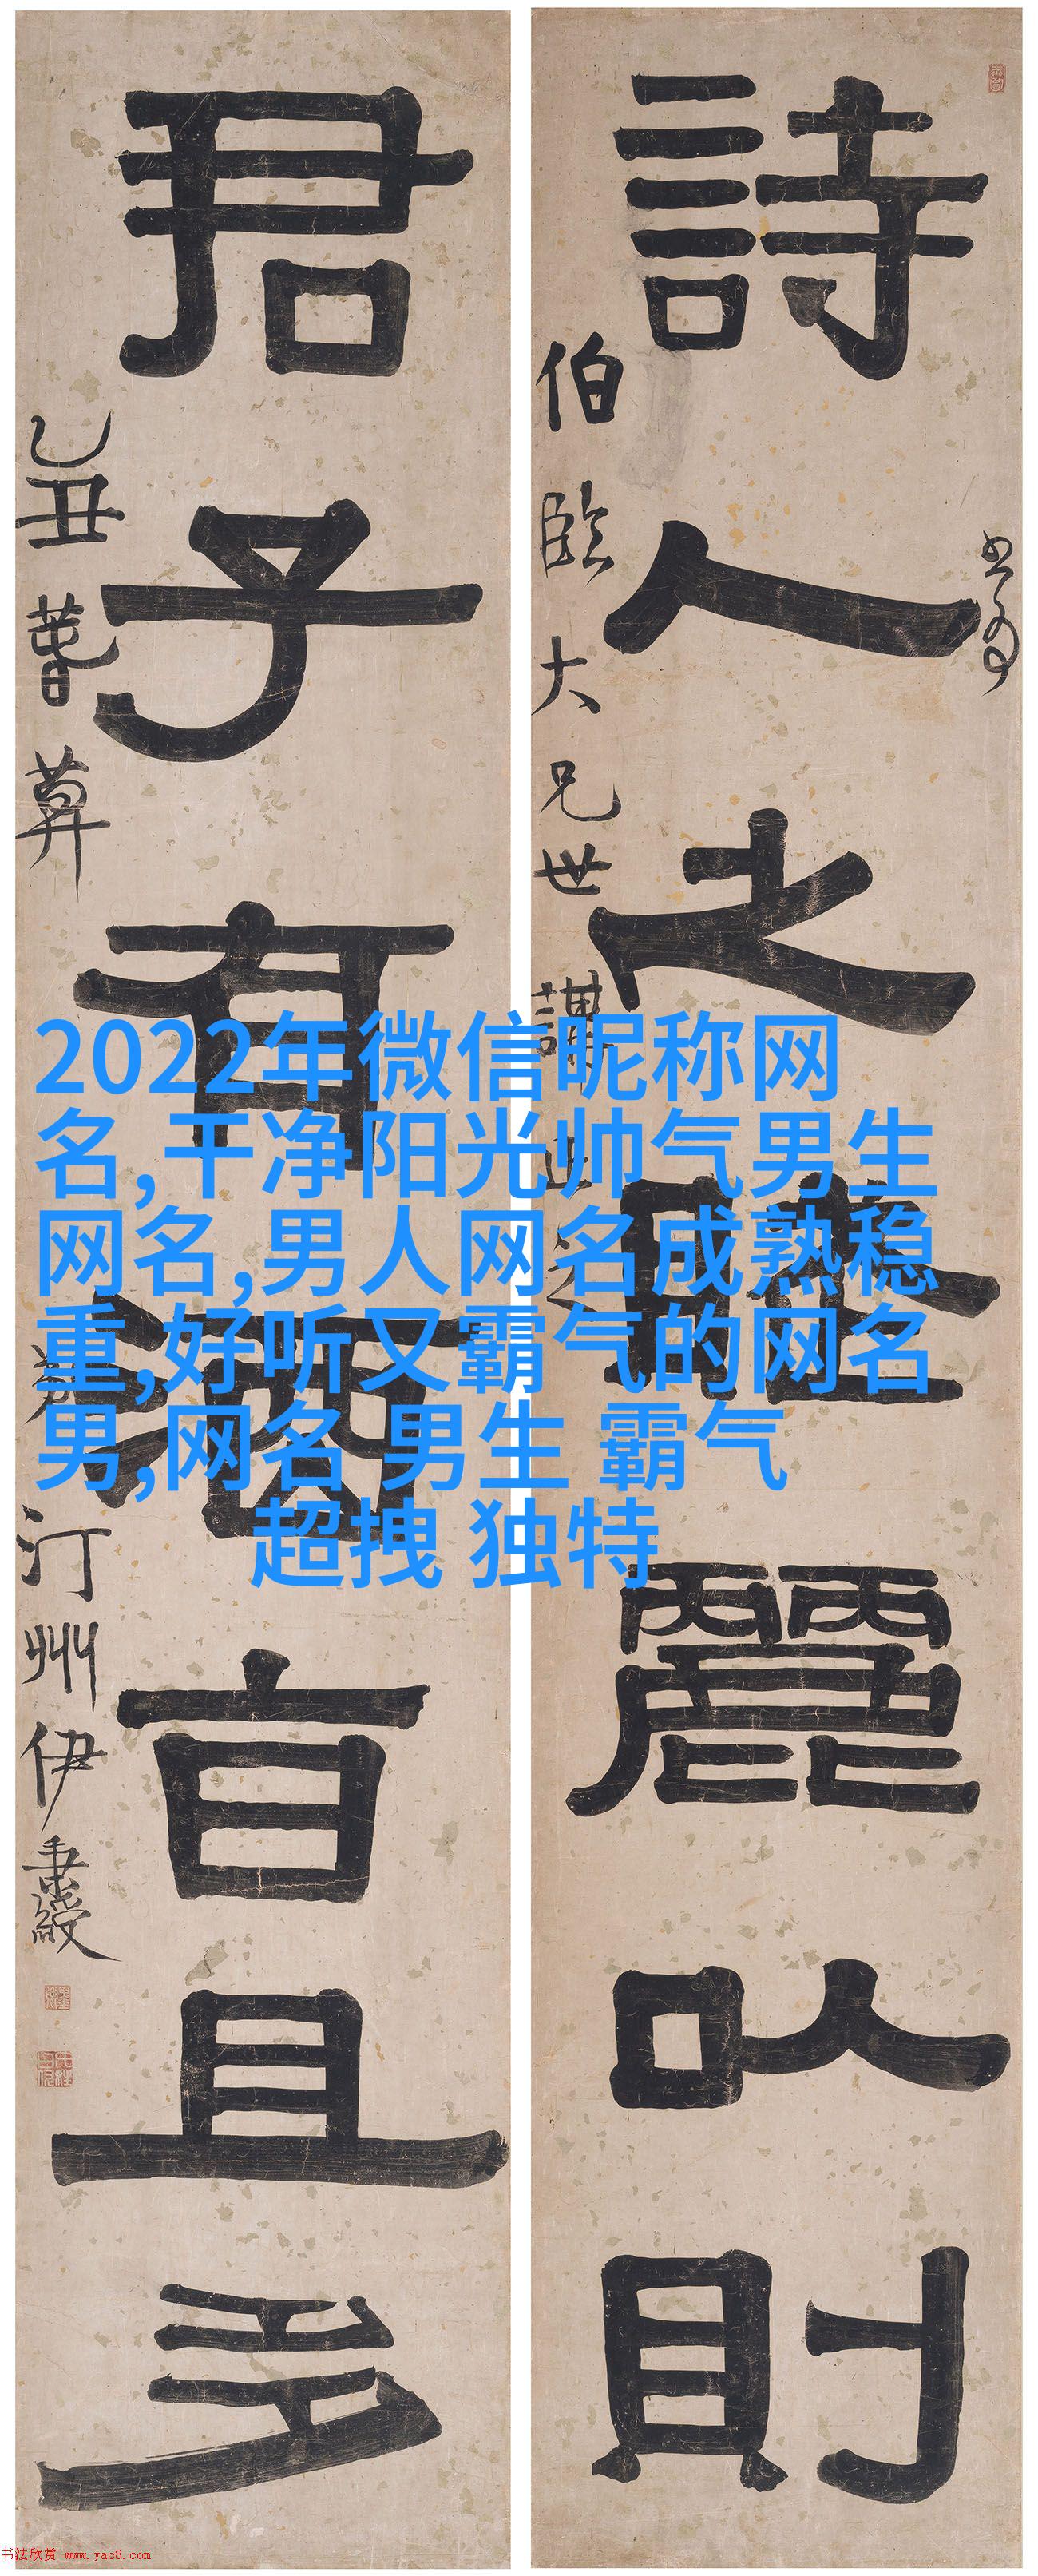 詩人之麗以則
伯臨大兄世講正之
君子有酒旨且多
乙丑
汀州伊秉綬
2022年微信昵称网
名,干净阳光帅气男生
网名,男人网名成熟稳
重,好听又霸气的网名
男,网名 男生 霸气
超拽 独特
书法欣赏 www.yac8.com